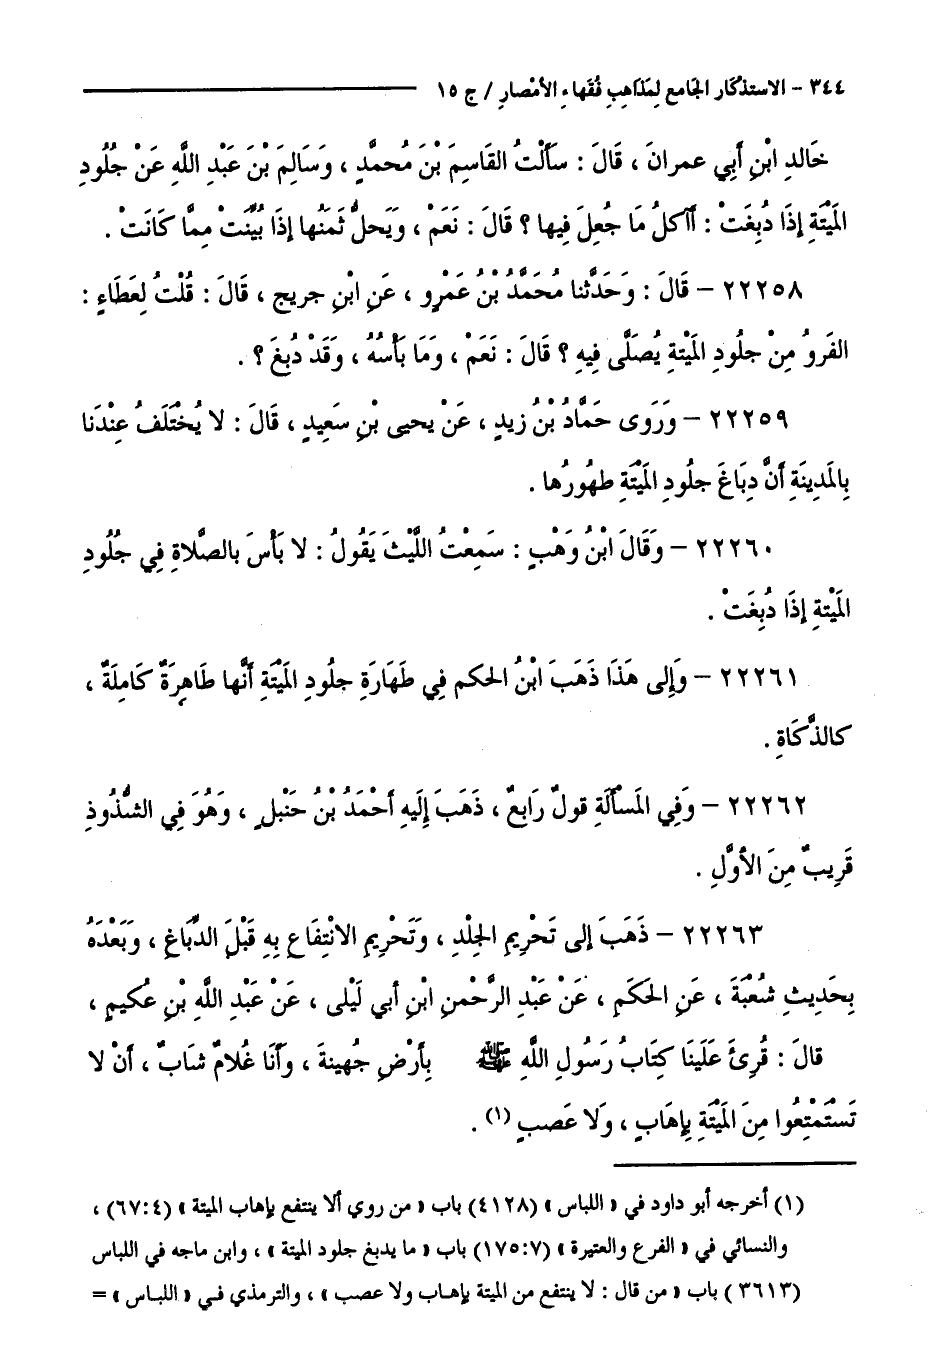 ٣٤٤ – الاستذكار الجامع لِمَذاهِبِ فُقَهاءِ الأمْصارِ / ج ١٥
خَالدِ ابْنِ أَبِي عمرانَ ، قَالَ : سَأَلْتُ القَاسِمَ بْنَ مُحمَّدٍ ، وَسَالِمَ بْنَ عَبْدِ اللَّهِ عَنْ جُلُودِ
المَيْتَةِ إِذَا دُبِغَتْ : أَآكلُ مَا جُعِلَ فِيها ؟ قَالَ : نَعَمْ ، وَيَحلُّ ثَمَنُها إِذَا بُيِّنَتْ مِمَّا كَانَتْ .
٢٢٢٥٨ – قَالَ : وَحَدَّثنا مُحَمَّدُ بْنُ عَمْرٍو ، عَنِ ابْنِ جريج ، قَالَ : قُلْتُ لِعَطَاءٍ :
الفَروُ مِنْ جلُودِ المَيْتةِ يُصَلَّى فِيهِ ؟ قَالَ : نَعَمْ ، وَمَا بَأْسُهُ ، وَقَدْ دُبغَ ؟ .
٢٢٢٥٩ – وَرَوَى حَمَّادُ بْنُ زيدٍ ، عَنْ يحيى بْنِ سَعِيدٍ ، قَالَ : لا يُخْتَلَفُ عِنْدَنَا
بِالَمدِينَةِ أَنَّ دِبَاغَ جلُودِ المَيْتَةِ طهُورُها .
٢٢٢٦٠ – وَقَالَ ابْنُ وَهْبٍ : سَمِعْتُ اللَّيْثَ يَقُولُ : لا بَأْسَ بالصَّلاةِ فِي جُلُودِ
المَيْتةِ إِذَا دُبِغَتْ .
٢٢٢٦١ – وَإِلى هَذَا ذَهَبَ ابْنُ الحكم فِي طَهَارَةِ جلُودِ المَيْتَةِ أَنَّها طَاهِرَةٌ كَامِلَةٌ ،
كالذَّكَاةِ .
٢٢٢٦٢ – وَفِي المَسْأَلَةِ قولٌ رَابعٌ ، ذَهَبَ إِلَيهِ أَحْمَدُ بْنُ حَنْبلٍ ، وَهُوَ فِي الشُّذُوذِ
قَرِيبٌ مِنَ الأوَّلِ .
٢٢٢٦٣ – ذَهَبَ إلى تَحْرِيمِ الجِلْدِ ، وَتَحْرِيمِ الانْتِفَاعِ بِهِ قَبْلَ الدِّبَاغِ ، وَبَعْدَهُ
بِحَدِيثِ شُعْبَةَ ، عَنِ الحَكَمِ ، عَنْ عَبْدِ الرَّحْمنِ ابْنِ أبي لَيْلى ، عَنْ عَبْدِ اللَّهِ بْنِ عُكيمٍ ،
قالَ : قُرِئَ عَلَينَا كِتَابُ رَسُولِ اللَّهِ ﷺ بِأَرْضِ جُهينةَ ، وَأَنَا غُلامٌ شَابٌ ، أَنْ لا
تَسْتَمْتِعُوا مِنَ المَيْتَةِ بِإِهَابٍ ، وَلا عَصبٍ (١) .
(١) أخرجه أبو داود في « اللباس » (٤١٢٨) باب « من روي ألا ينتفع بإهاب الميتة » (٦٧:٤) ،
والنسائي في « الفرع والعتيرة » (١٧٥:٧) باب « ما يدبغ جلود الميتة » ، وابن ماجه في اللباس
(٣٦١٣) باب « من قال : لا ينتفع من الميتة بإهاب ولا عصب » ، والترمذي في « اللباس » =